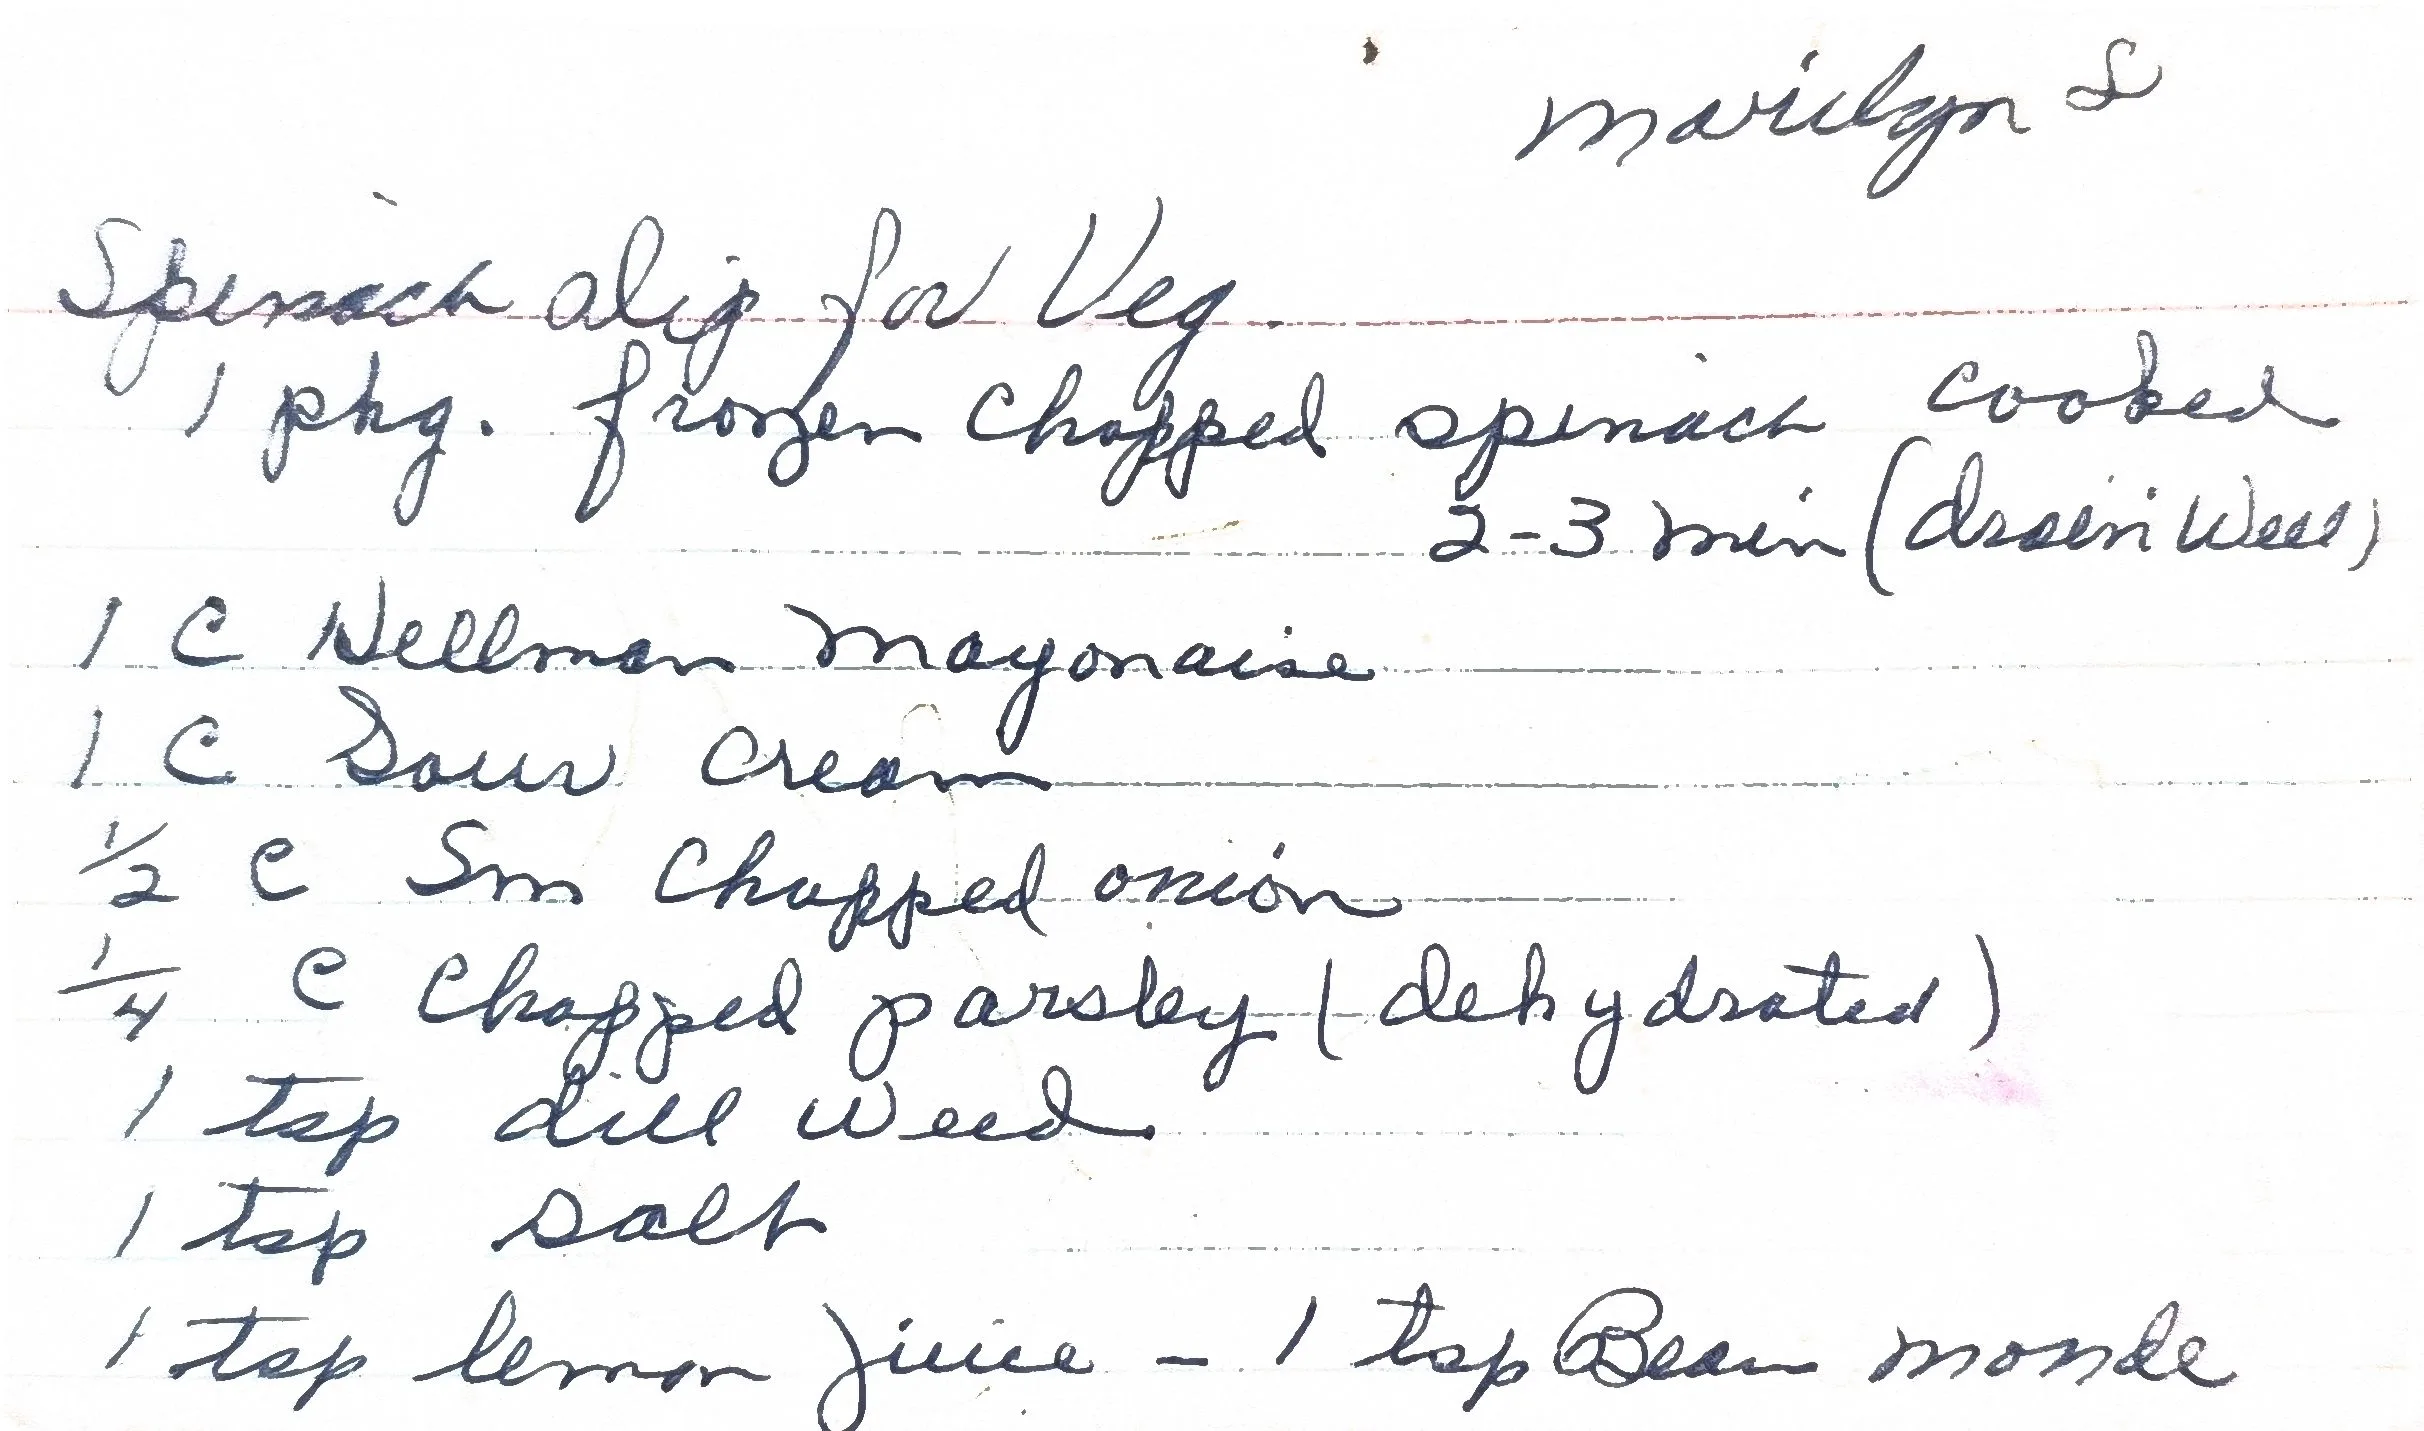 Marilyn S
Spinach dip for Veg.
1 pkg. frozen chopped spinach cooked
2-3 min (drain well)
1 C Hellman Mayonaise
1 C Sour Cream
1/2 C Sm Chopped onion
1/4 C Chopped parsley (dehydrated)
1 tsp dill weed
1 tsp salt
1 tsp lemon juice - 1 tsp Beau monde